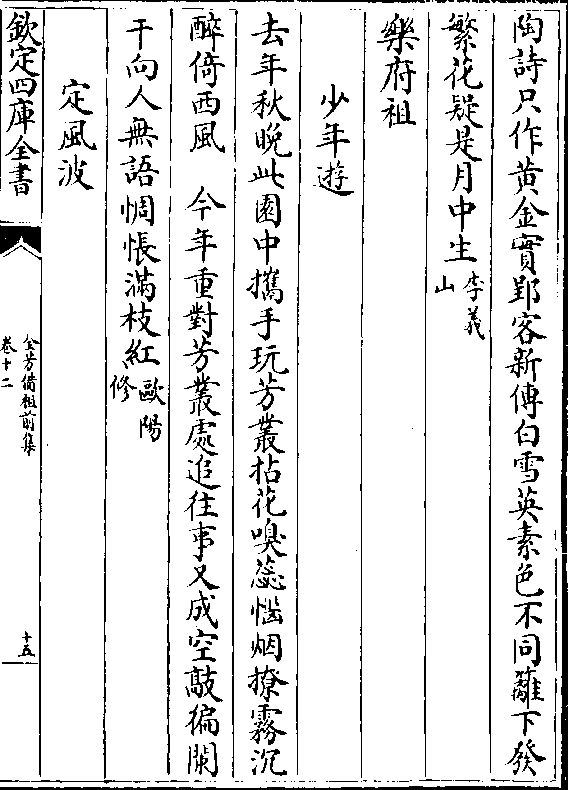 陶詩只作黃金實郢客新傳白雪英素色不同籬下發
繁花疑是月中生李義山
樂府祖
少年遊
去年秋晚此園中攜手玩芳叢拈花嗅蕊惱烟撩霧沉
醉倚西風　今年重對芳叢處追往事又成空敲徧闌
干向人無語惆悵滿枝紅歐陽修
定風波
欽定四庫全書
全芳備祖前集
卷十二
十五